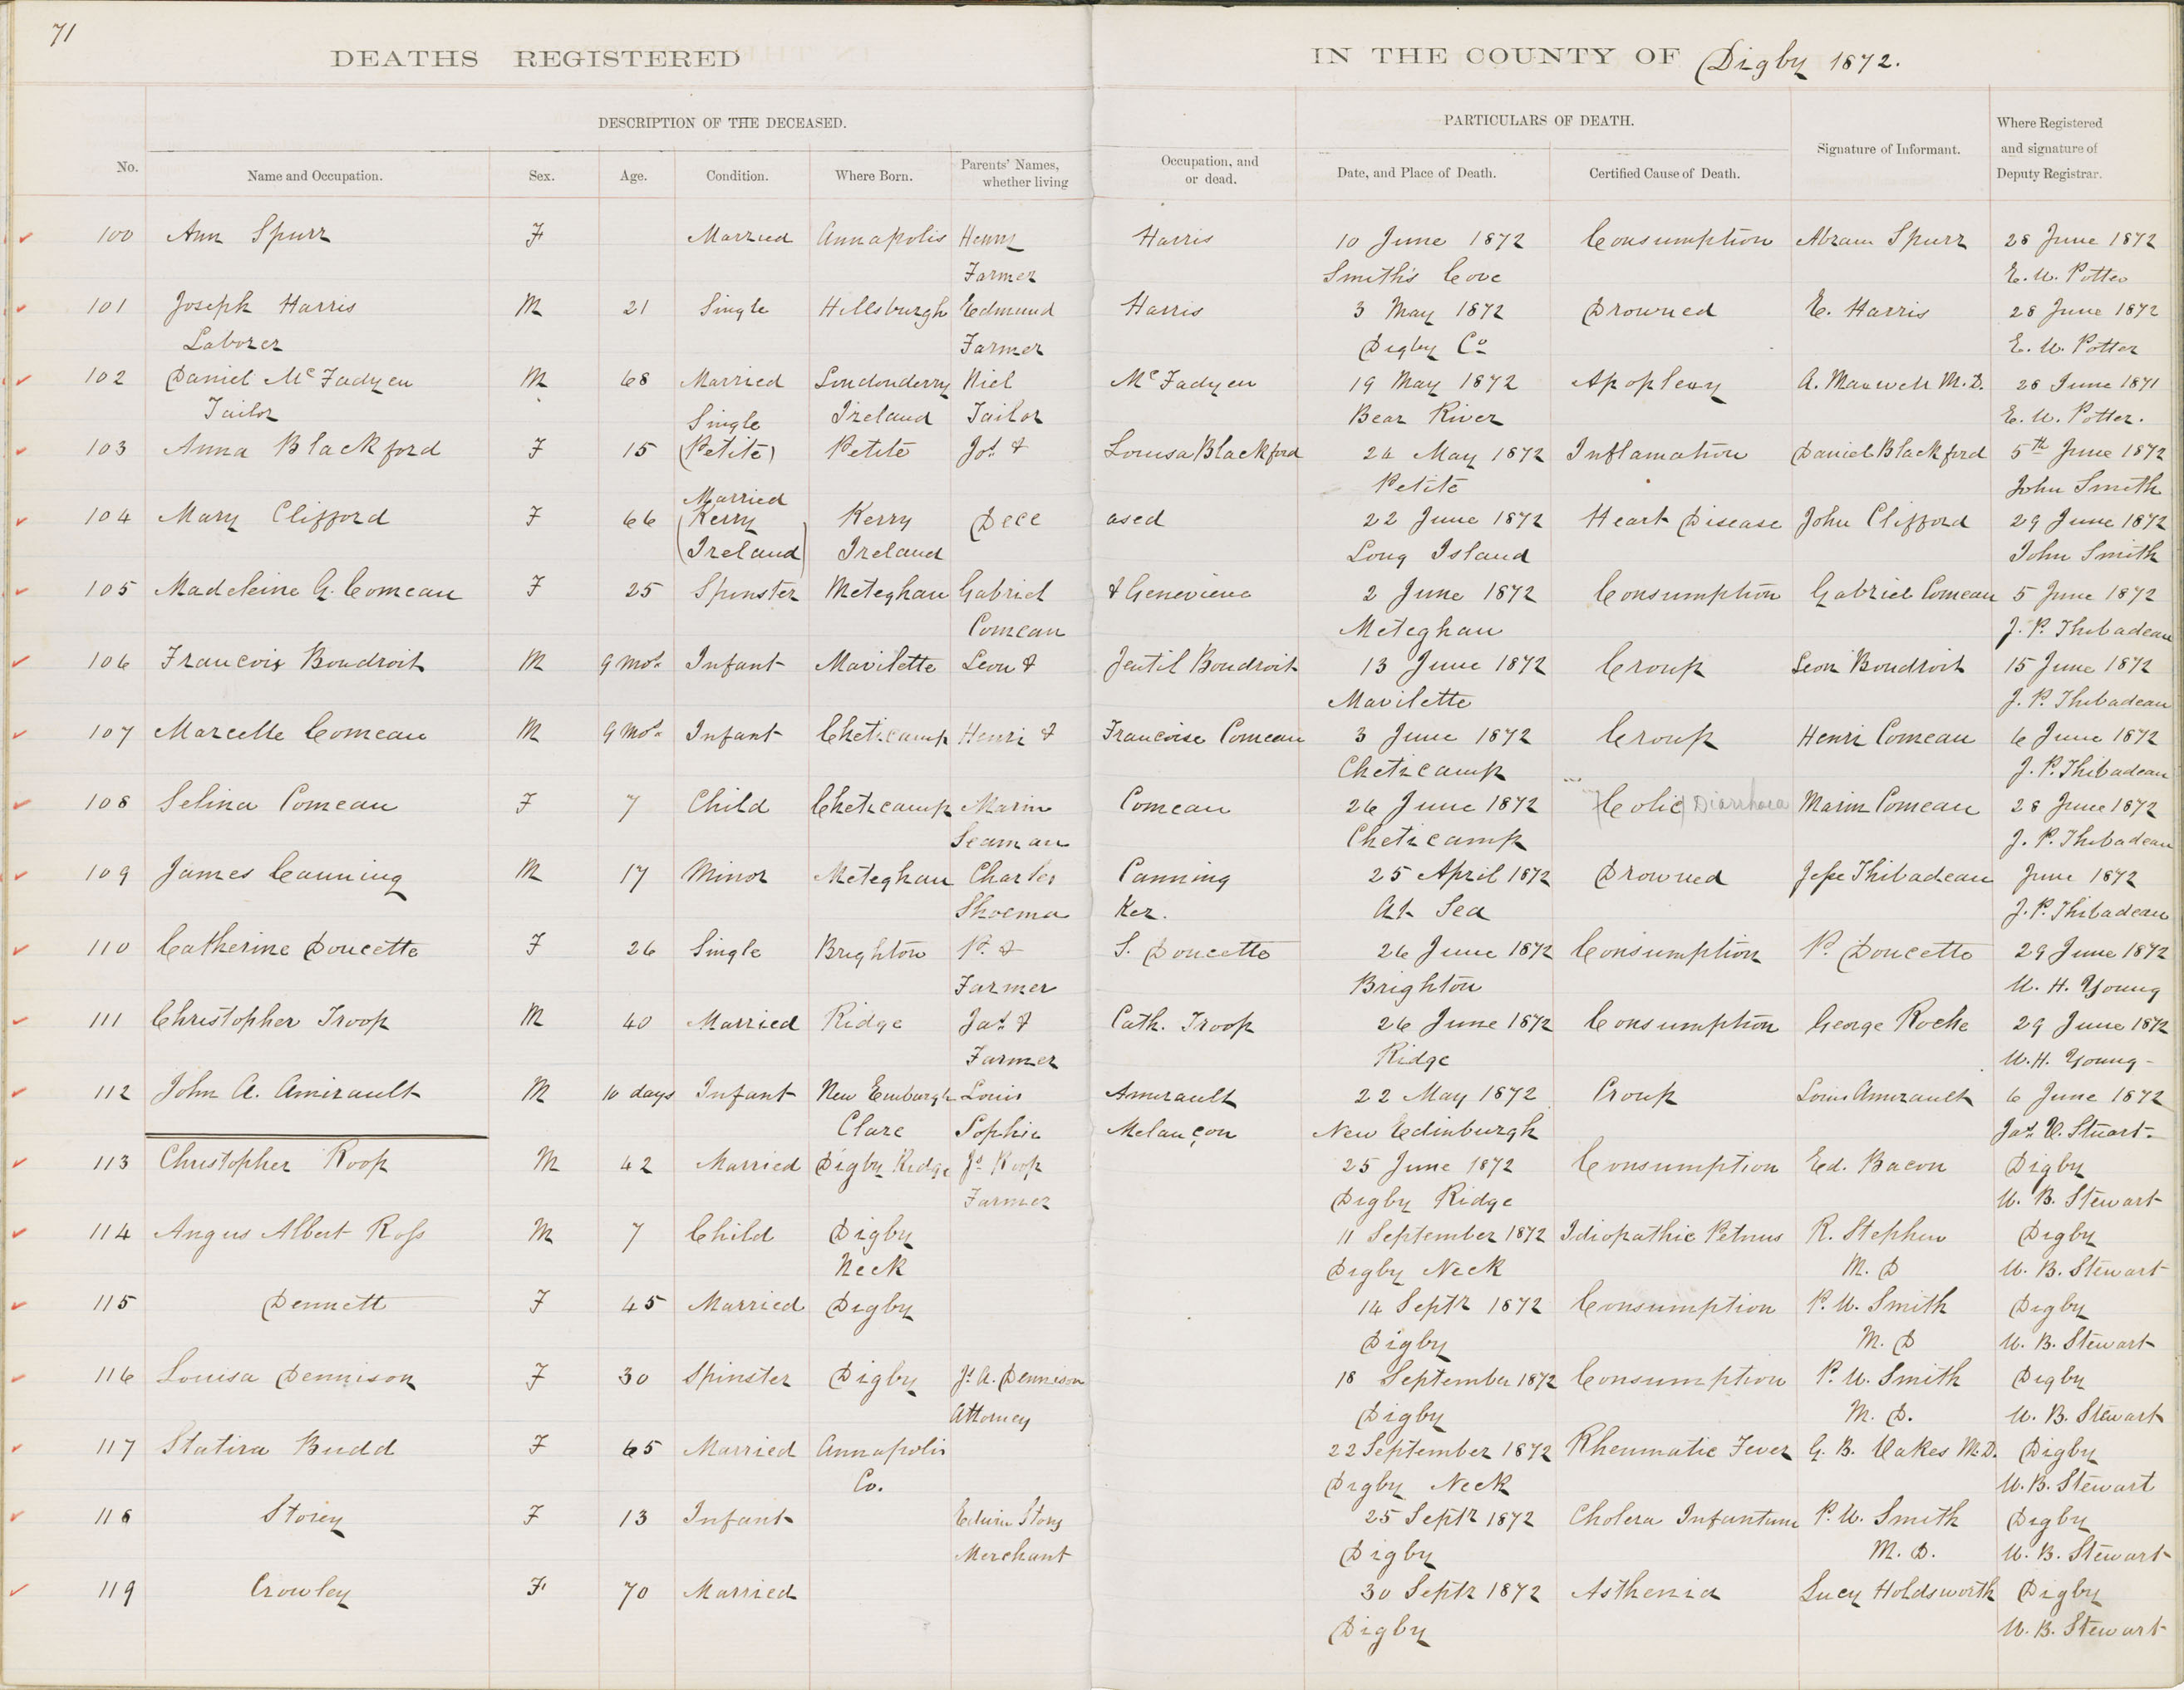 71
DEATHS REGISTERED IN THE COUNTY OF Digby 1872.
DESCRIPTION OF THE DECEASED. PARTICULARS OF DEATH. Where Registered and signature of Deputy Registrar.
No. Name and Occupation. Sex. Age. Condition. Where Born. Parents' Names, whether living Occupation, and or dead. Date, and Place of Death. Certified Cause of Death. Signature of Informant.
100 Ann Spurr F Married Annapolis Henry Harris 10 June 1872 Consumption Abram Spurr 28 June 1872
Farmer Smith's Cove E. W. Potter
101 Joseph Harris M 21 Single Hillsburgh Edmund Harris 3 May 1872 Drowned E. Harris 28 June 1872
Laborer Farmer Digby Co E. W. Potter
102 Daniel McFadyen M 68 Married Londonderry Niel McFadyen 19 May 1872 Apoplexy A. Maxwell M.D. 28 June 1871
Tailor Ireland Tailor Bear River E. W. Potter.
Single
103 Anna Blackford F 15 (Petite) Petite Jos. & Louisa Blackford 26 May 1872 Inflamation Daniel Blackford 5th June 1872
Petite John Smith
Married
104 Mary Clifford F 66 (Kerry Kerry Dece ased 22 June 1872 Heart Disease John Clifford 29 June 1872
Ireland) Ireland Long Island John Smith
105 Madeleine G. Comeau F 25 Spinster Meteghan Gabriel & Genevieve 2 June 1872 Consumption Gabriel Comeau 5 June 1872
Comeau Meteghan J. P. Thibadeau
106 Francois Boudroit M 9 mos. Infant Mavilette Leon & Jentil Boudroit 13 June 1872 Croup Leon Boudroit 15 June 1872
Mavilette J. P. Thibadeau
107 Marcelle Comeau M 9 Mos. Infant Cheticamp Henri & Francoise Comeau 3 June 1872 Croup Henri Comeau 6 June 1872
Cheticamp J. P. Thibadeau
108 Selina Comeau F 7 Child Cheticamp Marin Comeau 26 June 1872 (Colic) Diarrhoea Marin Comeau 28 June 1872
Seaman Cheticamp J. P. Thibadeau
109 James Canning M 17 Minor Meteghan Charles Canning 25 April 1872 Drowned Jesse Thibadeau June 1872
Shoema ker. At Sea J. P. Thibadeau
110 Catherine Doucette F 26 Single Brighton P. & S. Doucette 26 June 1872 Consumption P. Doucette 29 June 1872
Farmer Brighton W. H. Young
111 Christopher Troop M 40 Married Ridge Jas. & Cath. Troop 26 June 1872 Consumption George Roche 29 June 1872
Farmer Ridge W. H. Young
112 John A. Amirault M 10 days Infant New Edinburgh Louis Amirault 22 May 1872 Croup Louis Amirault 6 June 1872
Clare Sophie Melançon New Edinburgh Jas. Stuart.
113 Christopher Roop M 42 Married Digby Ridge Js. Roop 25 June 1872 Consumption Ed. Bacon Digby
Farmer Digby Ridge W. B. Stewart
114 Angus Albert Ross M 7 Child Digby 11 September 1872 Idiopathic Petnus R. Stephen Digby
Neck Digby Neck M. D W. B. Stewart
115 Dennett F 45 Married Digby 14 Septr 1872 Consumption P. W. Smith Digby
Digby M. D W. B. Stewart
116 Louisa Dennison F 30 Spinster Digby Js. A. Dennison 18 September 1872 Consumption P. W. Smith Digby
Attorney Digby M. D. W. B. Stewart
117 Statira Budd F 65 Married Annapolis 22 September 1872 Rheumatic Fever G. B. Oakes M.D. Digby
Co. Digby Neck W. B. Stewart
118 Storey F 13 Infant Edwin Story 25 Septr 1872 Cholera Infantum P. W. Smith Digby
Merchant Digby M. D. W. B. Stewart
119 Crowley F 70 Married 30 Septr 1872 Asthenia Lucy Holdsworth Digby
Digby W. B. Stewart